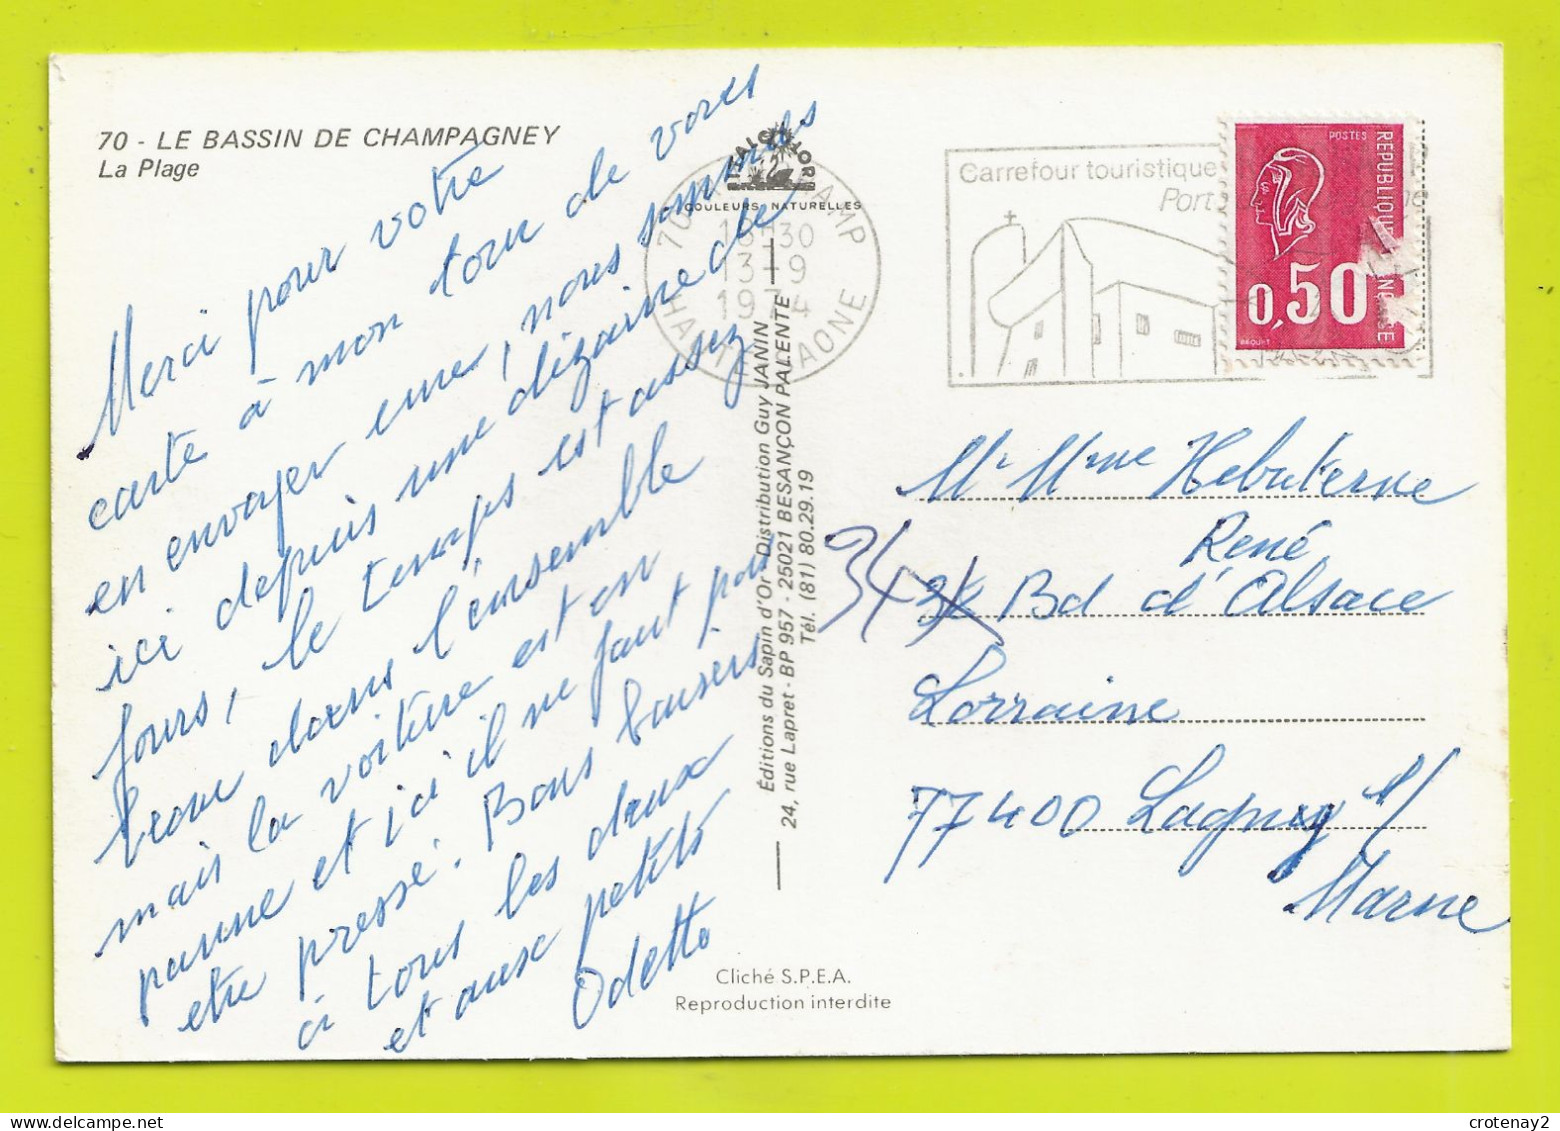 70 - LE BASSIN DE CHAMPAGNEY
La Plage
Merci pour votre
carte à mon tour de vous
en envoyer une, nous sommes
ici depuis une dizaine de
jours, le temps est assez
beau dans l'ensemble
mais la voiture est en
panne et ici il ne faut pas
etre pressé. Bons baisers
à tous les deux
et aux petits
Odette
COULEURS NATURELLES
18H30
13-9
1974
HAUTE SAONE
Éditions du Sapin d'Or - Distribution Guy JANIN
24, rue Lapret - BP 957 - 25021 BESANÇON PALENTE
Tél. (81) 80.29.19
Cliché S.P.E.A.
Reproduction interdite
Carrefour touristique
Port
POSTES
REPUBLIQUE
0,50
Mr Mme Hebuterne
René
34 Bd d'Alsace
Lorraine
77400 Lagny s/
Marne
crotenay2